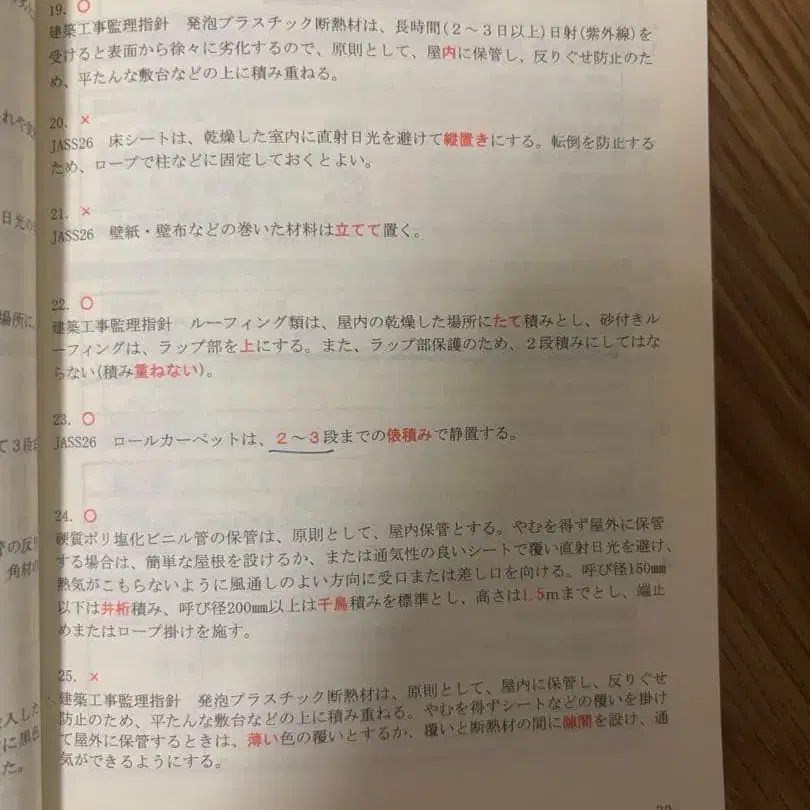 19. ○
建築工事監理指針　発泡プラスチック断熱材は、長時間(２～３日以上)日射(紫外線)を
受けると表面から徐々に劣化するので、原則として、屋内に保管し、反りぐせ防止のた
め、平たんな敷台などの上に積み重ねる。
20. ×
JASS26　床シートは、乾燥した室内に直射日光を避けて縦置きにする。転倒を防止する
ため、ロープで柱などに固定しておくとよい。
21. ×
JASS26　壁紙・壁布などの巻いた材料は立てて置く。
22. ○
建築工事監理指針　ルーフィング類は、屋内の乾燥した場所にたて積みとし、砂付きル
ーフィングは、ラップ部を上にする。また、ラップ部保護のため、２段積みにしてはな
らない(積み重ねない)。
23. ○
JASS26　ロールカーペットは、２～３段までの俵積みで静置する。
24. ○
硬質ポリ塩化ビニル管の保管は、原則として、屋内保管とする。やむを得ず屋外に保管
する場合は、簡単な屋根を設けるか、または通気性の良いシートで覆い直射日光を避け、
熱気がこもらないように風通しのよい方向に受口または差し口を向ける。呼び径150㎜
以下は井桁積み、呼び径200㎜以上は千鳥積みを標準とし、高さは1.5ｍまでとし、端止
めまたはロープ掛けを施す。
25. ×
建築工事監理指針　発泡プラスチック断熱材は、原則として、屋内に保管し、反りぐせ
防止のため、平たんな敷台などの上に積み重ねる。やむを得ずシートなどの覆いを掛け
て屋外に保管するときは、薄い色の覆いとするか、覆いと断熱材の間に隙間を設け、通
気ができるようにする。